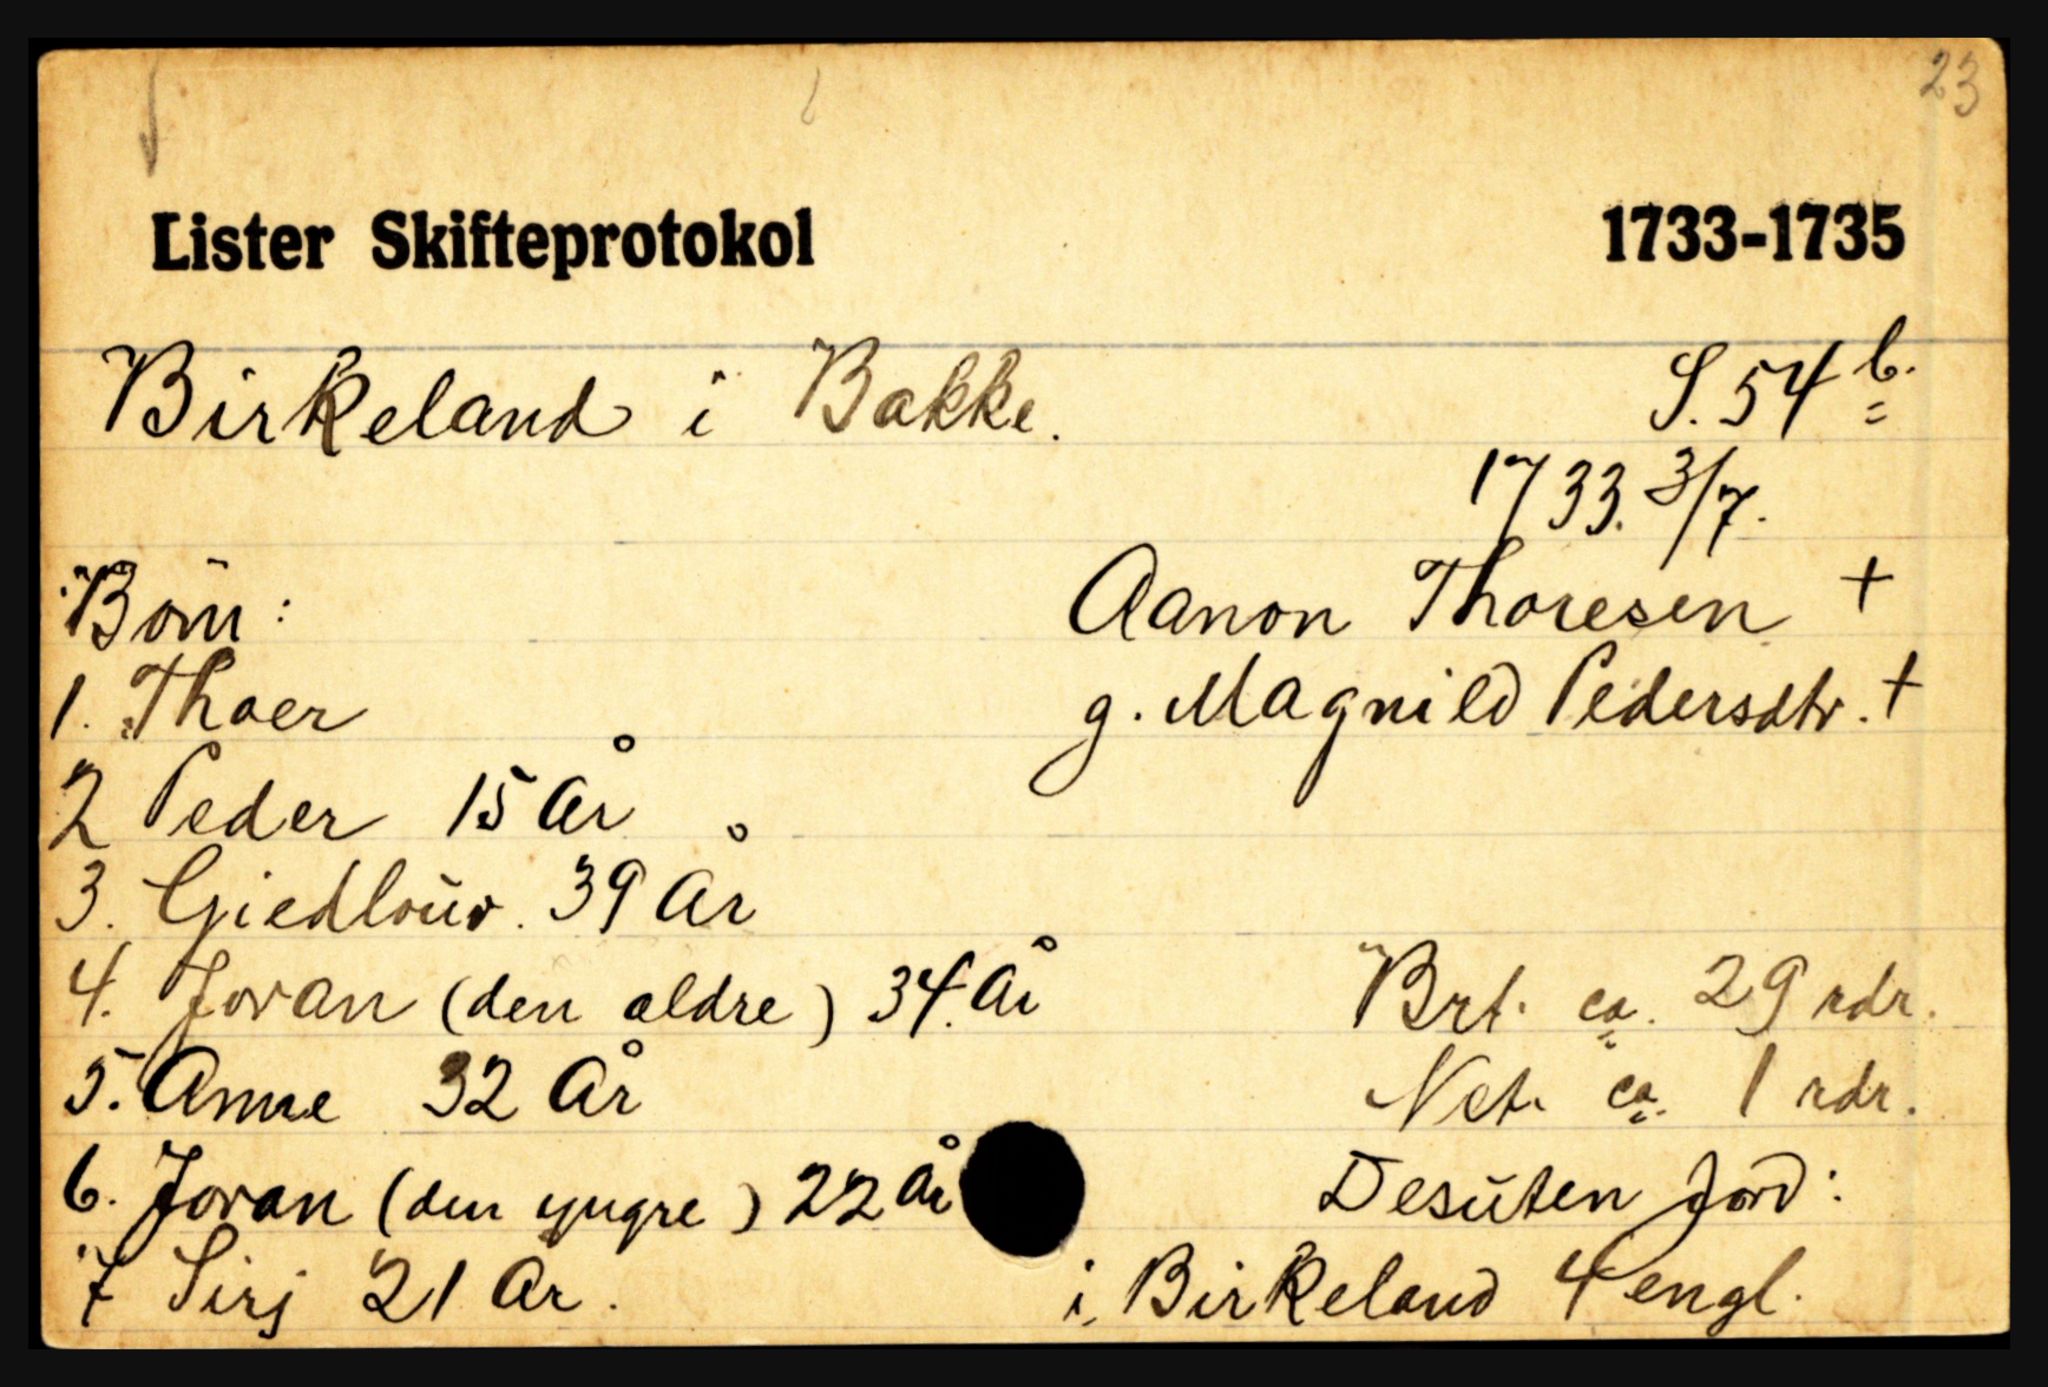 23
Lister Skifteprotokol 1733-1735
Birkeland i Bakke. S. 54 b.
1733. 3/7.
Börn: Aanon Thoresen +
1. Thoer g. Magnild Pedersdtr. +
2 Peder 15 År
3. Giedloŭv. 39 År
4. Joran (den ældre) 34. År Brt. ca. 29 rdr.
5. Anne 32 År Net. ca. 1 rdr.
6. Joran (den yngre) 22 År Desŭten Jord:
7 Sirj 21 År. i, Birkeland 4 engl.